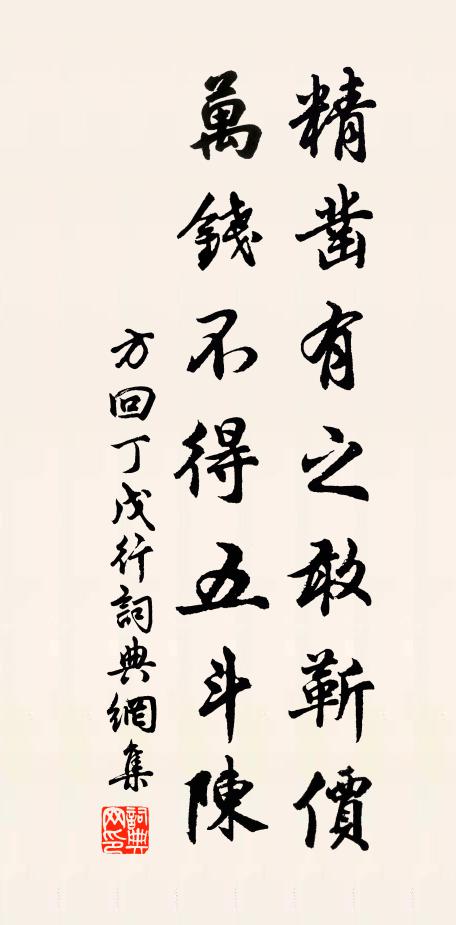 精凿有之敢靳價
萬錢不得五斗陳
方回丁戊行詞典網集
詞典
网印